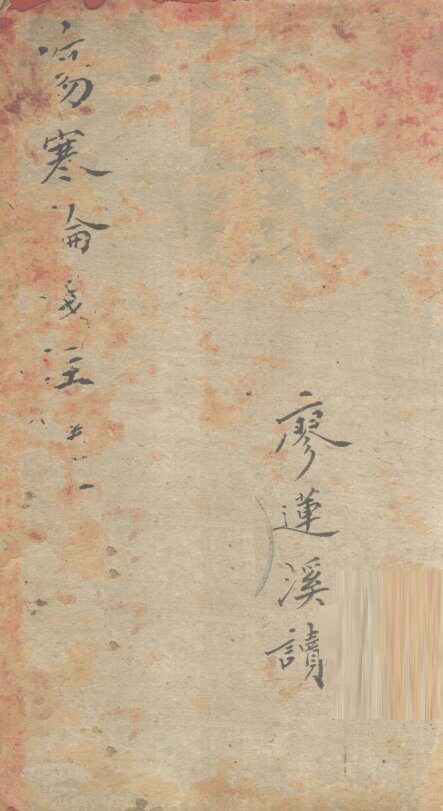 傷寒論淺注
廖蓮溪讀